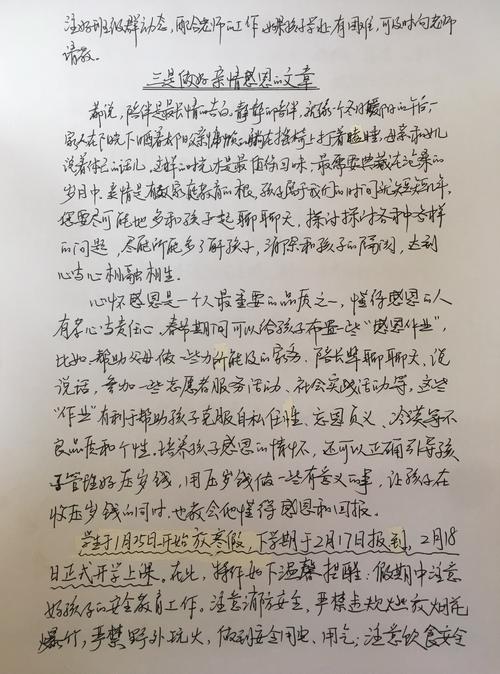 注好班级群动态,配合老师的工作。如果孩子学业有困难,可及时向老师
请教。
三是做好亲情感恩的文章
都说,陪伴是最长情的告白。静静的陪伴,就像个冬日暖阳的午后,
家人在下晒着太阳
说着体己的话儿。这样的时光是最值得回味、最需要典藏在
岁月中。亲情是有效家庭教育的根,孩子属于我们的时间就短短几年,
您要尽可能地多和孩子一起聊聊天,探讨探讨各种各样
的问题,尽能所能多了解孩子,消除和孩子的隔阂,达到
心与心相融相生。
心怀感恩是一个人最重要的品质之一,懂得感恩的人
有名心与责任心。春节期间可以给孩子布置一些“感恩作业”,
比如:帮助父母做一些力所能及的家务、陪长辈聊聊天、说
说话,参加一些志愿者服务活动、社会实践活动等,这些
“作业”有利于帮助孩子克服自私任性、忘恩负义、冷漠等不
良品质和个性,培养孩子感恩的情怀,还可以正确引导孩
子管理好压岁钱,用压岁钱做一些有意义的事,让孩子在
收压岁钱的同时,也教会他懂得感恩和回报。
学生于1月25日开始放寒假,下学期于2月17日报到,2月18
日正式开学上课。在此,特作如下温馨提醒:假期中注意
好孩子的安全教育工作。注意消防安全,严禁违规燃放烟花
爆竹,严禁野外玩火,做到安全用电、用气;注意饮食安全